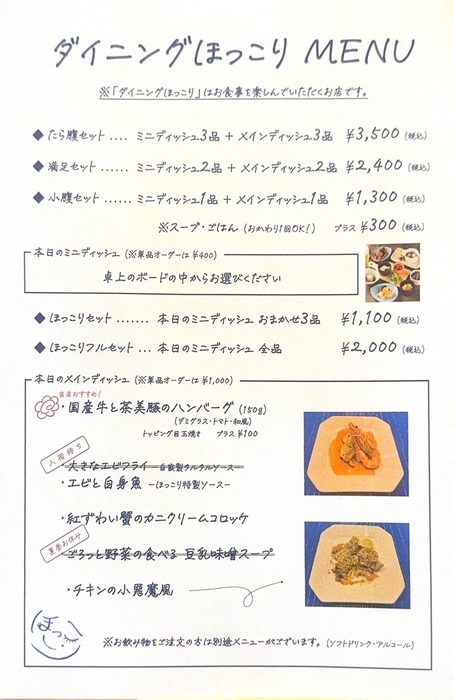 ダイニングほっこり MENU
※「ダイニングほっこり」はお食事を楽しんでいただくお店です。
◆ たら腹セット .... ミニディッシュ3品 + メインディッシュ3品 ¥3,500 (税込)
◆ 満足セット ...... ミニディッシュ2品 + メインディッシュ2品 ¥2,400 (税込)
◆ 小腹セット ...... ミニディッシュ1品 + メインディッシュ1品 ¥1,300 (税込)
※スープ・ごはん (おかわり1回OK!) プラス ¥300 (税込)
本日のミニディッシュ (※単品オーダーは ¥400)
卓上のボードの中からお選びください
◆ ほっこりセット ....... 本日のミニディッシュ おまかせ3品 ¥1,100 (税込)
◆ ほっこりフルセット ... 本日のミニディッシュ 全品 ¥2,000 (税込)
本日のメインディッシュ (※単品オーダーは ¥1,000)
当店おすすめ!
・国産牛と茶美豚のハンバーグ (150g)
(デミグラス・トマト・和風)
トッピング目玉焼き プラス ¥100
入荷待ち
・大きなエビフライ ー自家製タルタルソースー
・エビと白身魚 ーほっこり特製ソースー
・紅ずわい蟹のカニクリームコロッケ
夏季お休み
・ごろっと野菜の食べる 豆乳味噌スープ
・チキンの小悪魔風
ほっこり
※お飲み物をご注文の方は別途メニューがございます。(ソフトドリンク・アルコール)